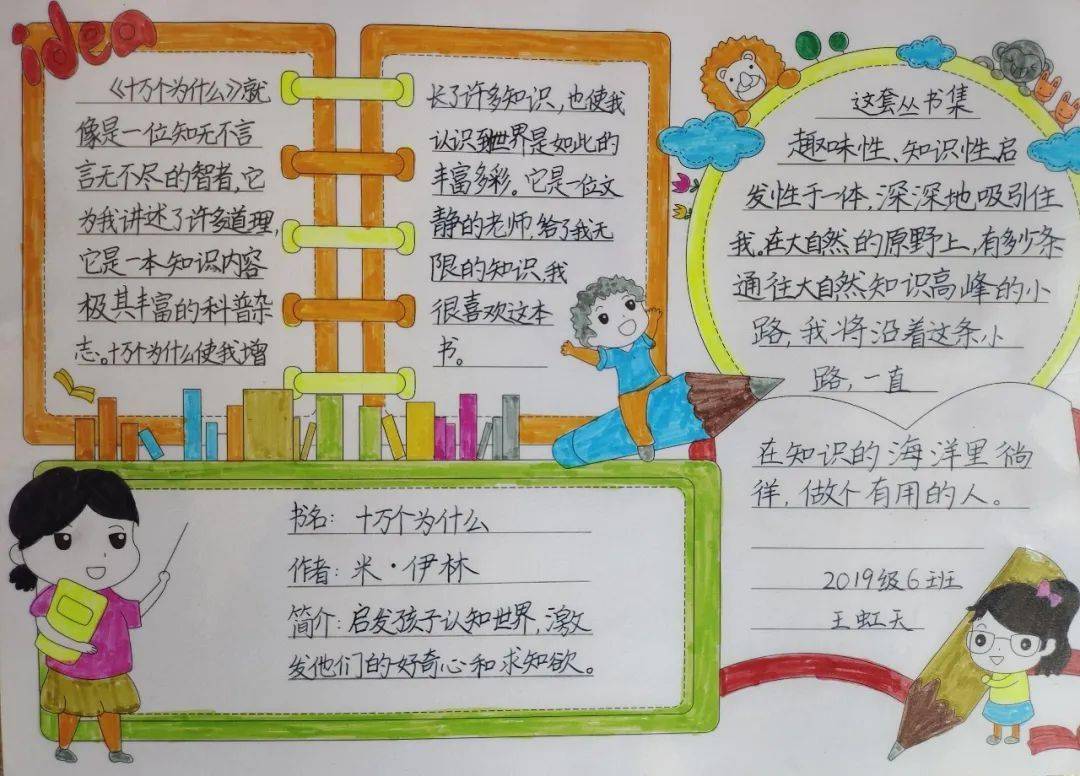 idea
《十万个为什么》就
像是一位知无不言
言无不尽的智者,它
为我讲述了许多道理,
它是一本知识内容
极其丰富的科普杂
志。十万个为什么使我增
长了许多知识,也使我
认识到世界是如此的
丰富多彩。它是一位文
静的老师,给了我无
限的知识,我
很喜欢这本
书。
这套丛书集
趣味性、知识性、启
发性于一体,深深地吸引住
我。在大自然的原野上,有多少条
通往大自然知识高峰的小
路,我将沿着这条小
路,一直
在知识的海洋里徜
徉,做个有用的人。
2019级6班
王虹天
书名:十万个为什么
作者:米·伊林
简介:启发孩子认知世界,激
发他们的好奇心和求知欲。